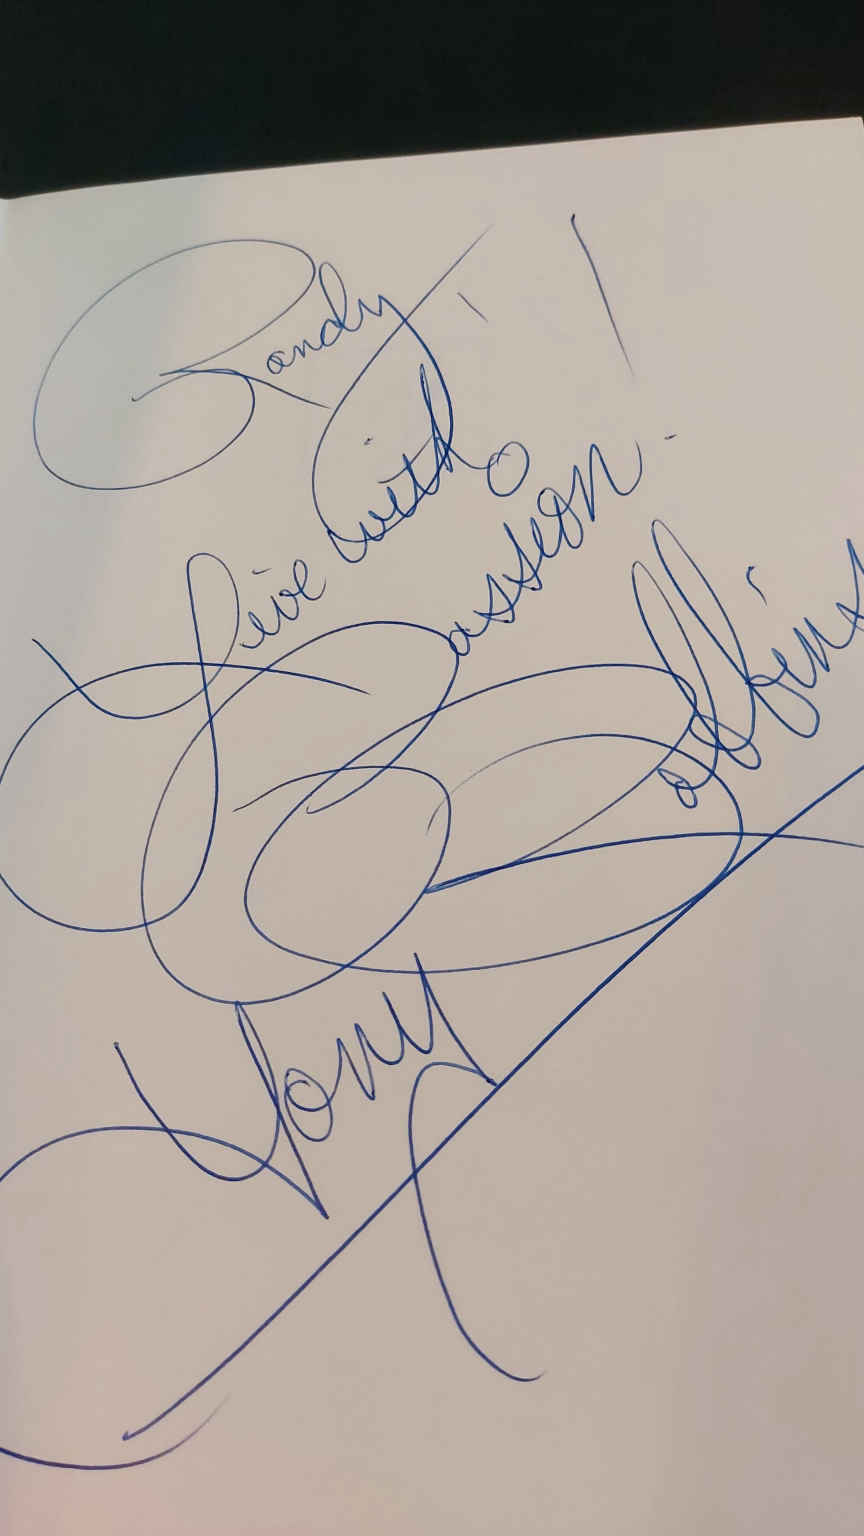 Randy,
Live with
Passion!
Tony Robbins